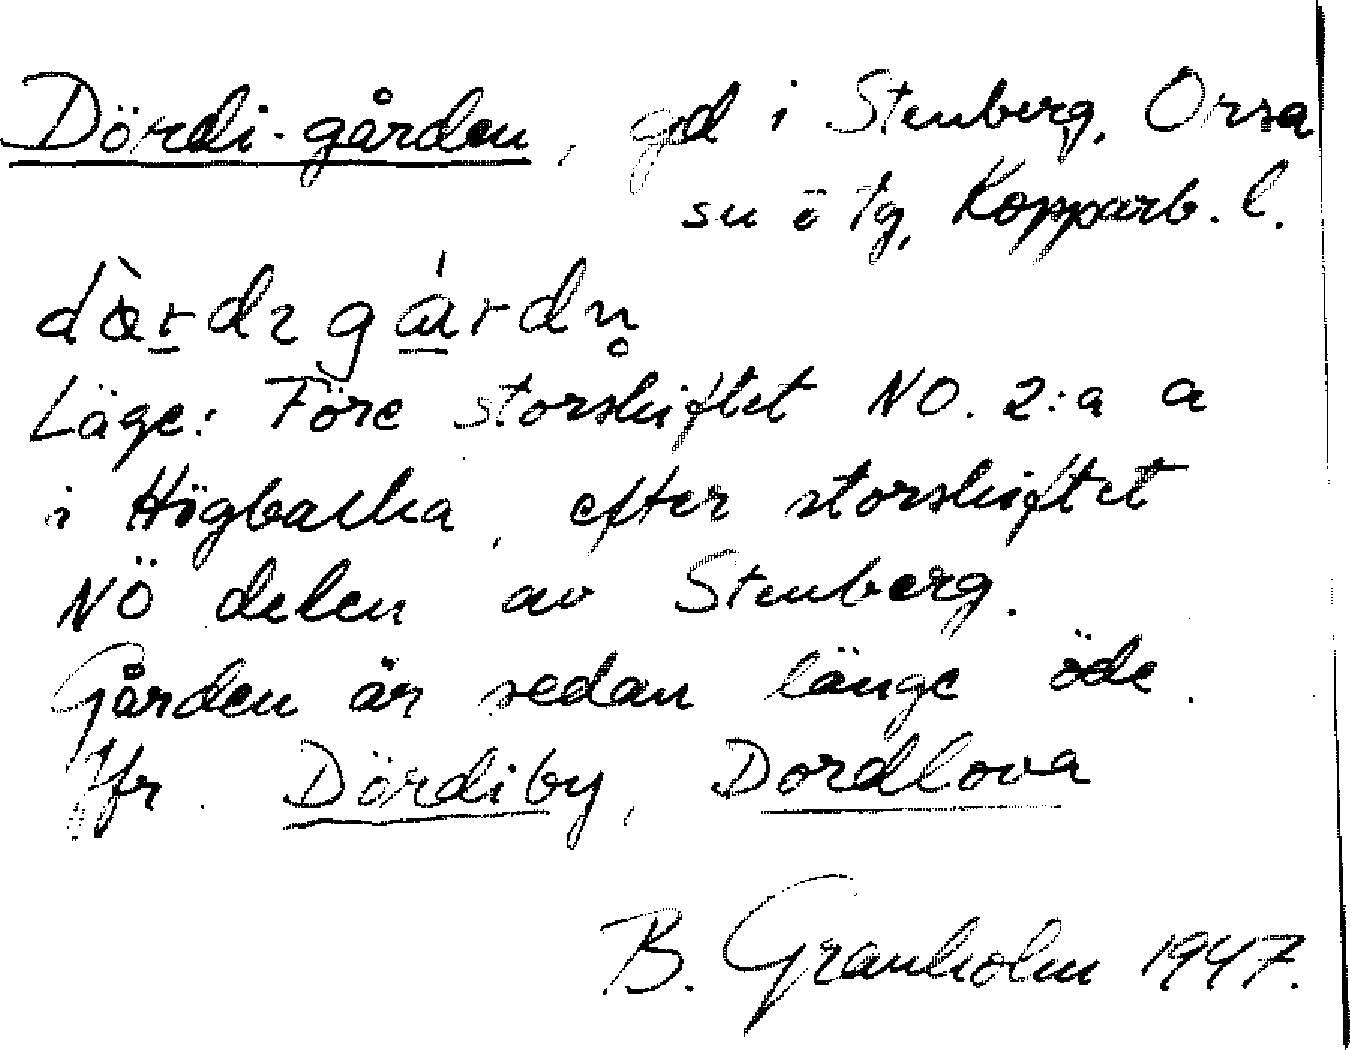 Dördi-gården, gd i Stenberg, Orsa
sn ö tg, Kopparb. l.
Läge: Före storskiftet NO. 2:a a
i Högbacka, efter storskiftet
NÖ delen av Stenberg.
Gården är sedan länge öde.
Jfr. Dördiby, Dordlova
B. Granholm 1947.